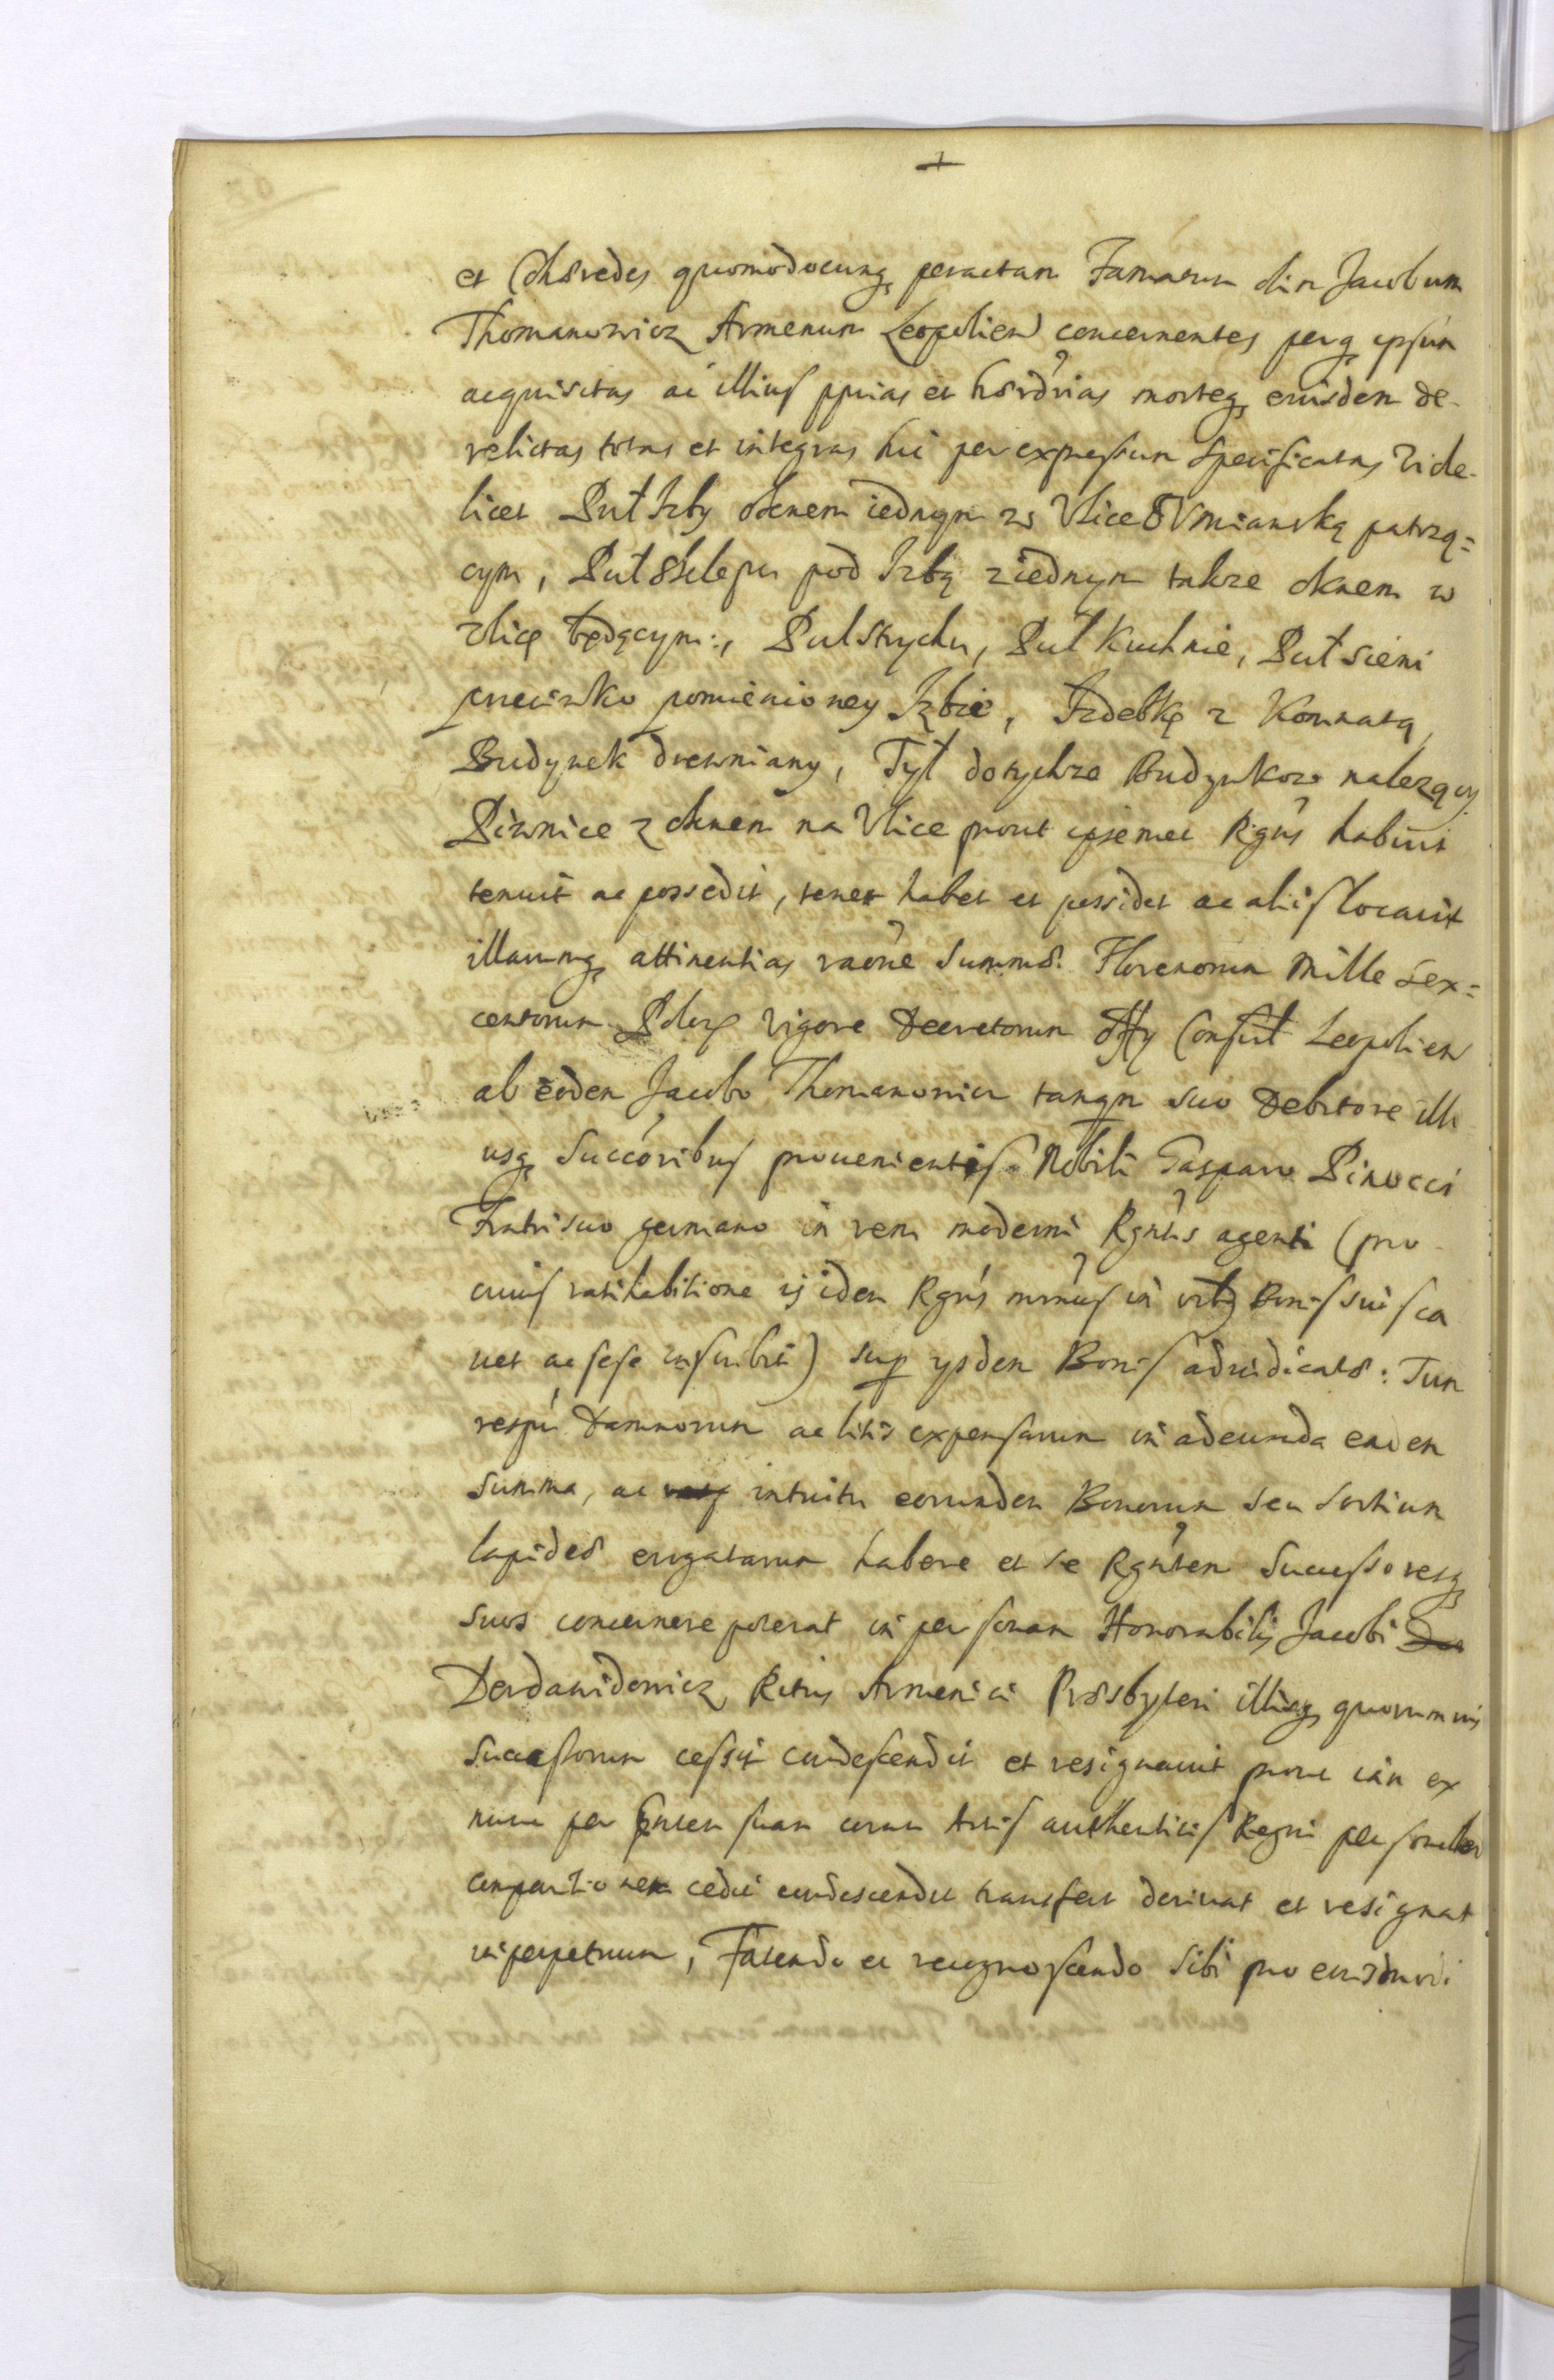 et Cohæredes quomodocunq peractam Famatum olim Jacobum
Thomanowicz Armenum Leopolien concernentes perq ipsum
acquisitas ac illius pprias et hæredrias morteq eiusdem de-
relictas totas et integras hic per expressum specificatas Vide-
licet Puł Izby oknem iednym w Vlice Ormianską patrzą=
cym, Puł Sklepu pod Izbą z iednym także oknem w
Vlicę będącym:, Puł Strychu, Puł Kuchnie, Puł sieni
przeciwko pomienioney Izbie, Izdebkę z Komnatą,
Budynek drewniany, Tył do tychze Budynkow nalezący
Piwnice z oknem na Vlice prout ipsemet Rgns habuit
tenuit ac possedit, tenet habet et possidet ac alijs locauit
illarumq attinentias raone Summæ Florenorum Mille sex=
centorum Polon Vigore Decretorum Offy Consul Leopolien
ab eodem Jacobo Thomanowicz tanqm suo Debitore illi
usq Succoribus prouenientis Nobili Gasparo Pinocci
Fratri suo germano in rem moderni Rgntis agenti (pro
cuius ratihabitione is idem Rgns in Bonis suis ca
uet ac sese inscribit) sup ysdem Bonis adiudicatæ: Tum
respu Damnorum ac litis expensarum in adeunda eadem
summa, ac intuitu eorundem Bonorum seu sortium
lapideæ erogatarum habere et se Rgntem Successoresq
suos concernere poterat in personam Honorabilis Jacobi
Derdawidowicz Ritus Armenici Præsbyteri illiusq quorumuis
Successorum cessit condescendit et resignauit prout iam ex
nunc per pntem suam coram Actis authenticis Regni personalem
comparitionem cedit condescendit transfert deriuat et resignat
in perpetuum, Fatendo et recognoscendo sibi pro eiusdmodi